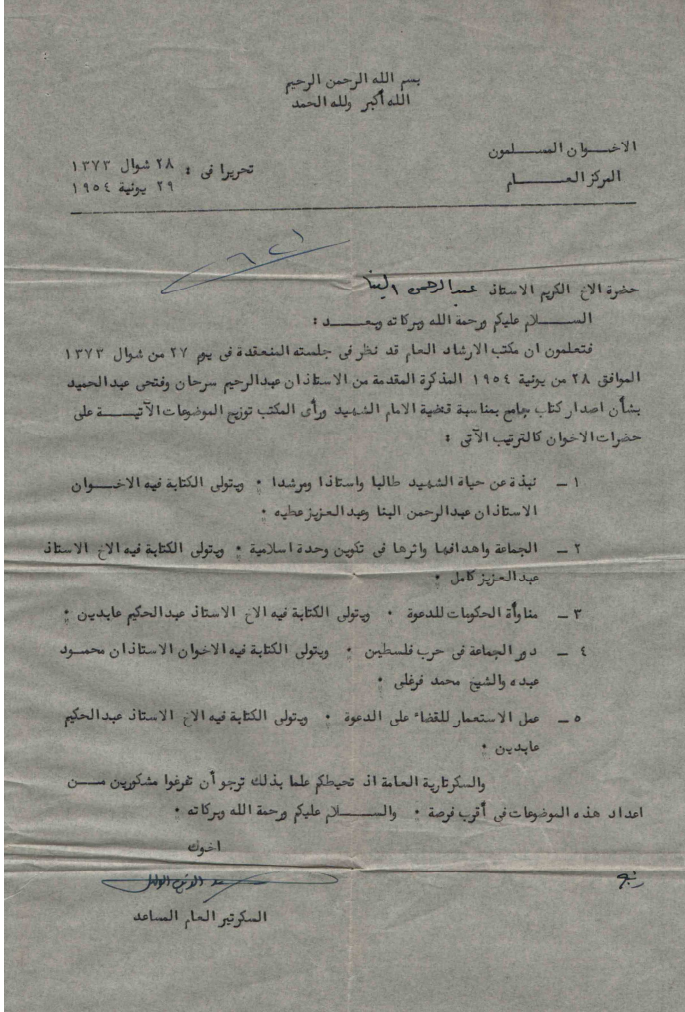 بسم الله الرحمن الرحيم
الله أكبر ولله الحمد
الاخـــوان المســـلمون
المركز العـــــام
تحريرا فى : ٢٨ شوال ١٣٧٣
٢٩ يونية ١٩٥٤
حضرة الاخ الكريم الاستاذ عبد الرحمن البنا
الســـــلام عليكم ورحمة الله وبركاته وبعـــــد :
فتعلمون ان مكتب الارشاد العام قد نظر فى جلسته المنعقدة فى يوم ٢٧ من شوال ١٣٧٣
الموافق ٢٨ من يونية ١٩٥٤ المذكرة المقدمة من الاستاذان عبدالرحيم سرحان وفتحى عبدالحميد
بشأن اصدار كتاب جامع بمناسبة قضية الامام الشهيد ورأى المكتب توزيع الموضوعات الآتيـــة على
حضرات الاخوان كالترتيب الآتى :
١ ــ نبذة عن حياة الشهيد طالبا واستاذا ومرشدا • ويتولى الكتابة فيه الاخـــوان
الاستاذان عبدالرحمن البنا وعبدالعزيز عطيه •
٢ ــ الجماعة واهدافها واثرها فى تكوين وحدة اسلامية • ويتولى الكتابة فيه الاخ الاستاذ
عبدالعزيز كامل •
٣ ــ مناوأة الحكومات للدعوة • ويتولى الكتابة فيه الاخ الاستاذ عبدالحكيم عابدين •
٤ ــ دور الجماعة فى حرب فلسطين • ويتولى الكتابة فيه الاخوان الاستاذان محمـــود
عبده والشيخ محمد فرغلى •
٥ ــ عمل الاستعمار للقضاء على الدعوة • ويتولى الكتابة فيه الاخ الاستاذ عبدالحكيم
عابدين •
والسكرتارية العامة اذ تحيطكم علما بذلك ترجو أن تفرغوا مشكورين مـــن
اعداد هذه الموضوعات فى أقرب فرصة • والســـــلام عليكم ورحمة الله وبركاته •
اخوك
السكرتير العام المساعد